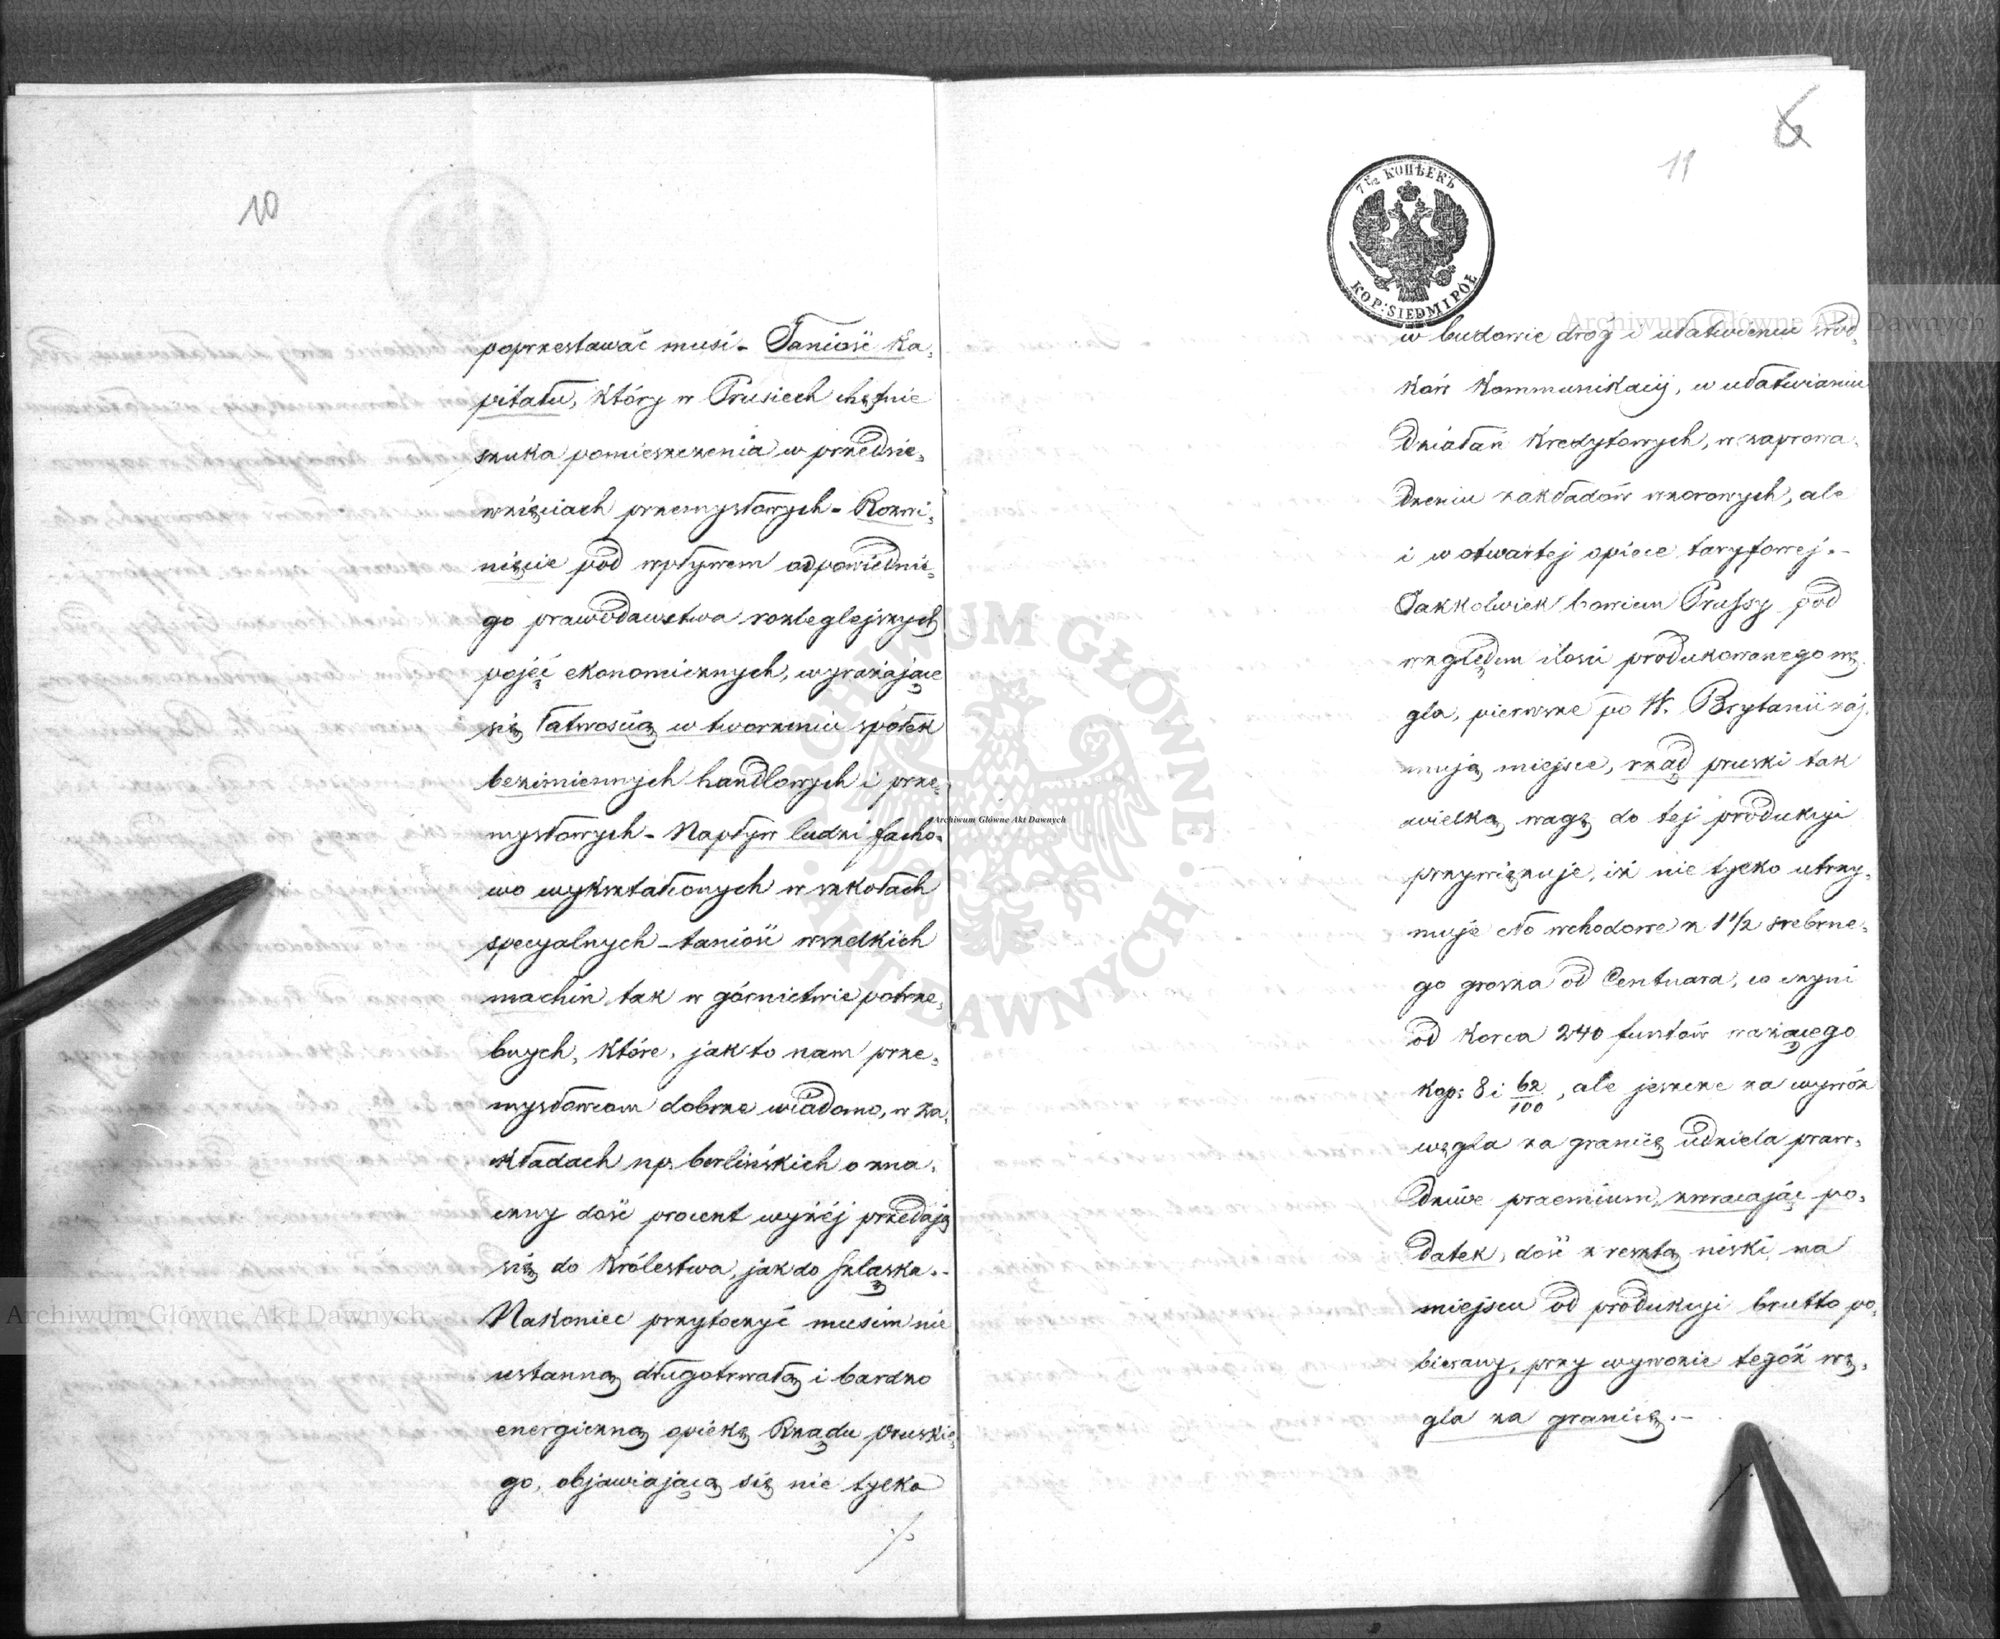 10
poprzestawać musi – Taniość ka=
pitału, który w Prusiech chętnie
szuka pomieszczenia w przedsię=
wzięciach przemysłowych – Rozwi=
nięcie pod wpływem odpowiednie=
go prawodawstwa rozleglejszych
pojęć ekonomicznych, wyrażające
się łatwością w tworzeniu spółek
bezimiennych handlowych i prze=
mysłowych – Napływ ludzi facho=
wo wykształconych w szkołach
specyalnych – taniość wszelkich
machin tak w górnictwie potrze=
bnych, które, jak to nam prze=
mysłowcom dobrze wiadomo, w za=
kładach np. berlińskich o zna=
czny dość procent wyżéj przedają
się do Królestwa, jak do Szląska. –
Nakoniec przytoczyć musim nie
ustanną długotrwałą i bardzo
energiczną opiekę Rządu pruskie=
go, objawiającą się nie tylko
./.
6
11
7 1/2 КОПѢЕКЪ
KOP: SIEDM I PÓŁ
w budowie dróg i ułatwieniu środ=
ków kommunikacij, w ułatwianiu
działań kredytowych, w zaprowa=
dzeniu zakładów wzorowych, ale
i w otwartej opiece taryfowej. –
Jakkolwiek bowiem Prussy pod
względem ilości produkowanego wę=
gla, pierwsze po W. Brytanii zaj=
mują miejsce, rząd pruski tak
wielką wagę do tej produkcyi
przywiązuje, iż nie tylko utrzy=
muje cło wchodowe z 1 1/2 srebrne=
go grosza od Centnara, co czyni
od korca 240 funtów ważącego
kop: 8 i 62/100, ale jeszcze za wywóz
węgla za granicę udziela praw=
dziwe praemium, zwracając po=
datek, dość z resztą niski, na
miejscu od produkcyi brutto po=
bierany, przy wywozie tegóż wę=
gla za granicę. –
./.
Archiwum Główne Akt Dawnych
Archiwum Główne Akt Dawnych
Archiwum Główne Akt Dawnych
Archiwum Główne Akt Dawnych
ARCHIWUM GŁÓWNE · AKT DAWNYCH ·